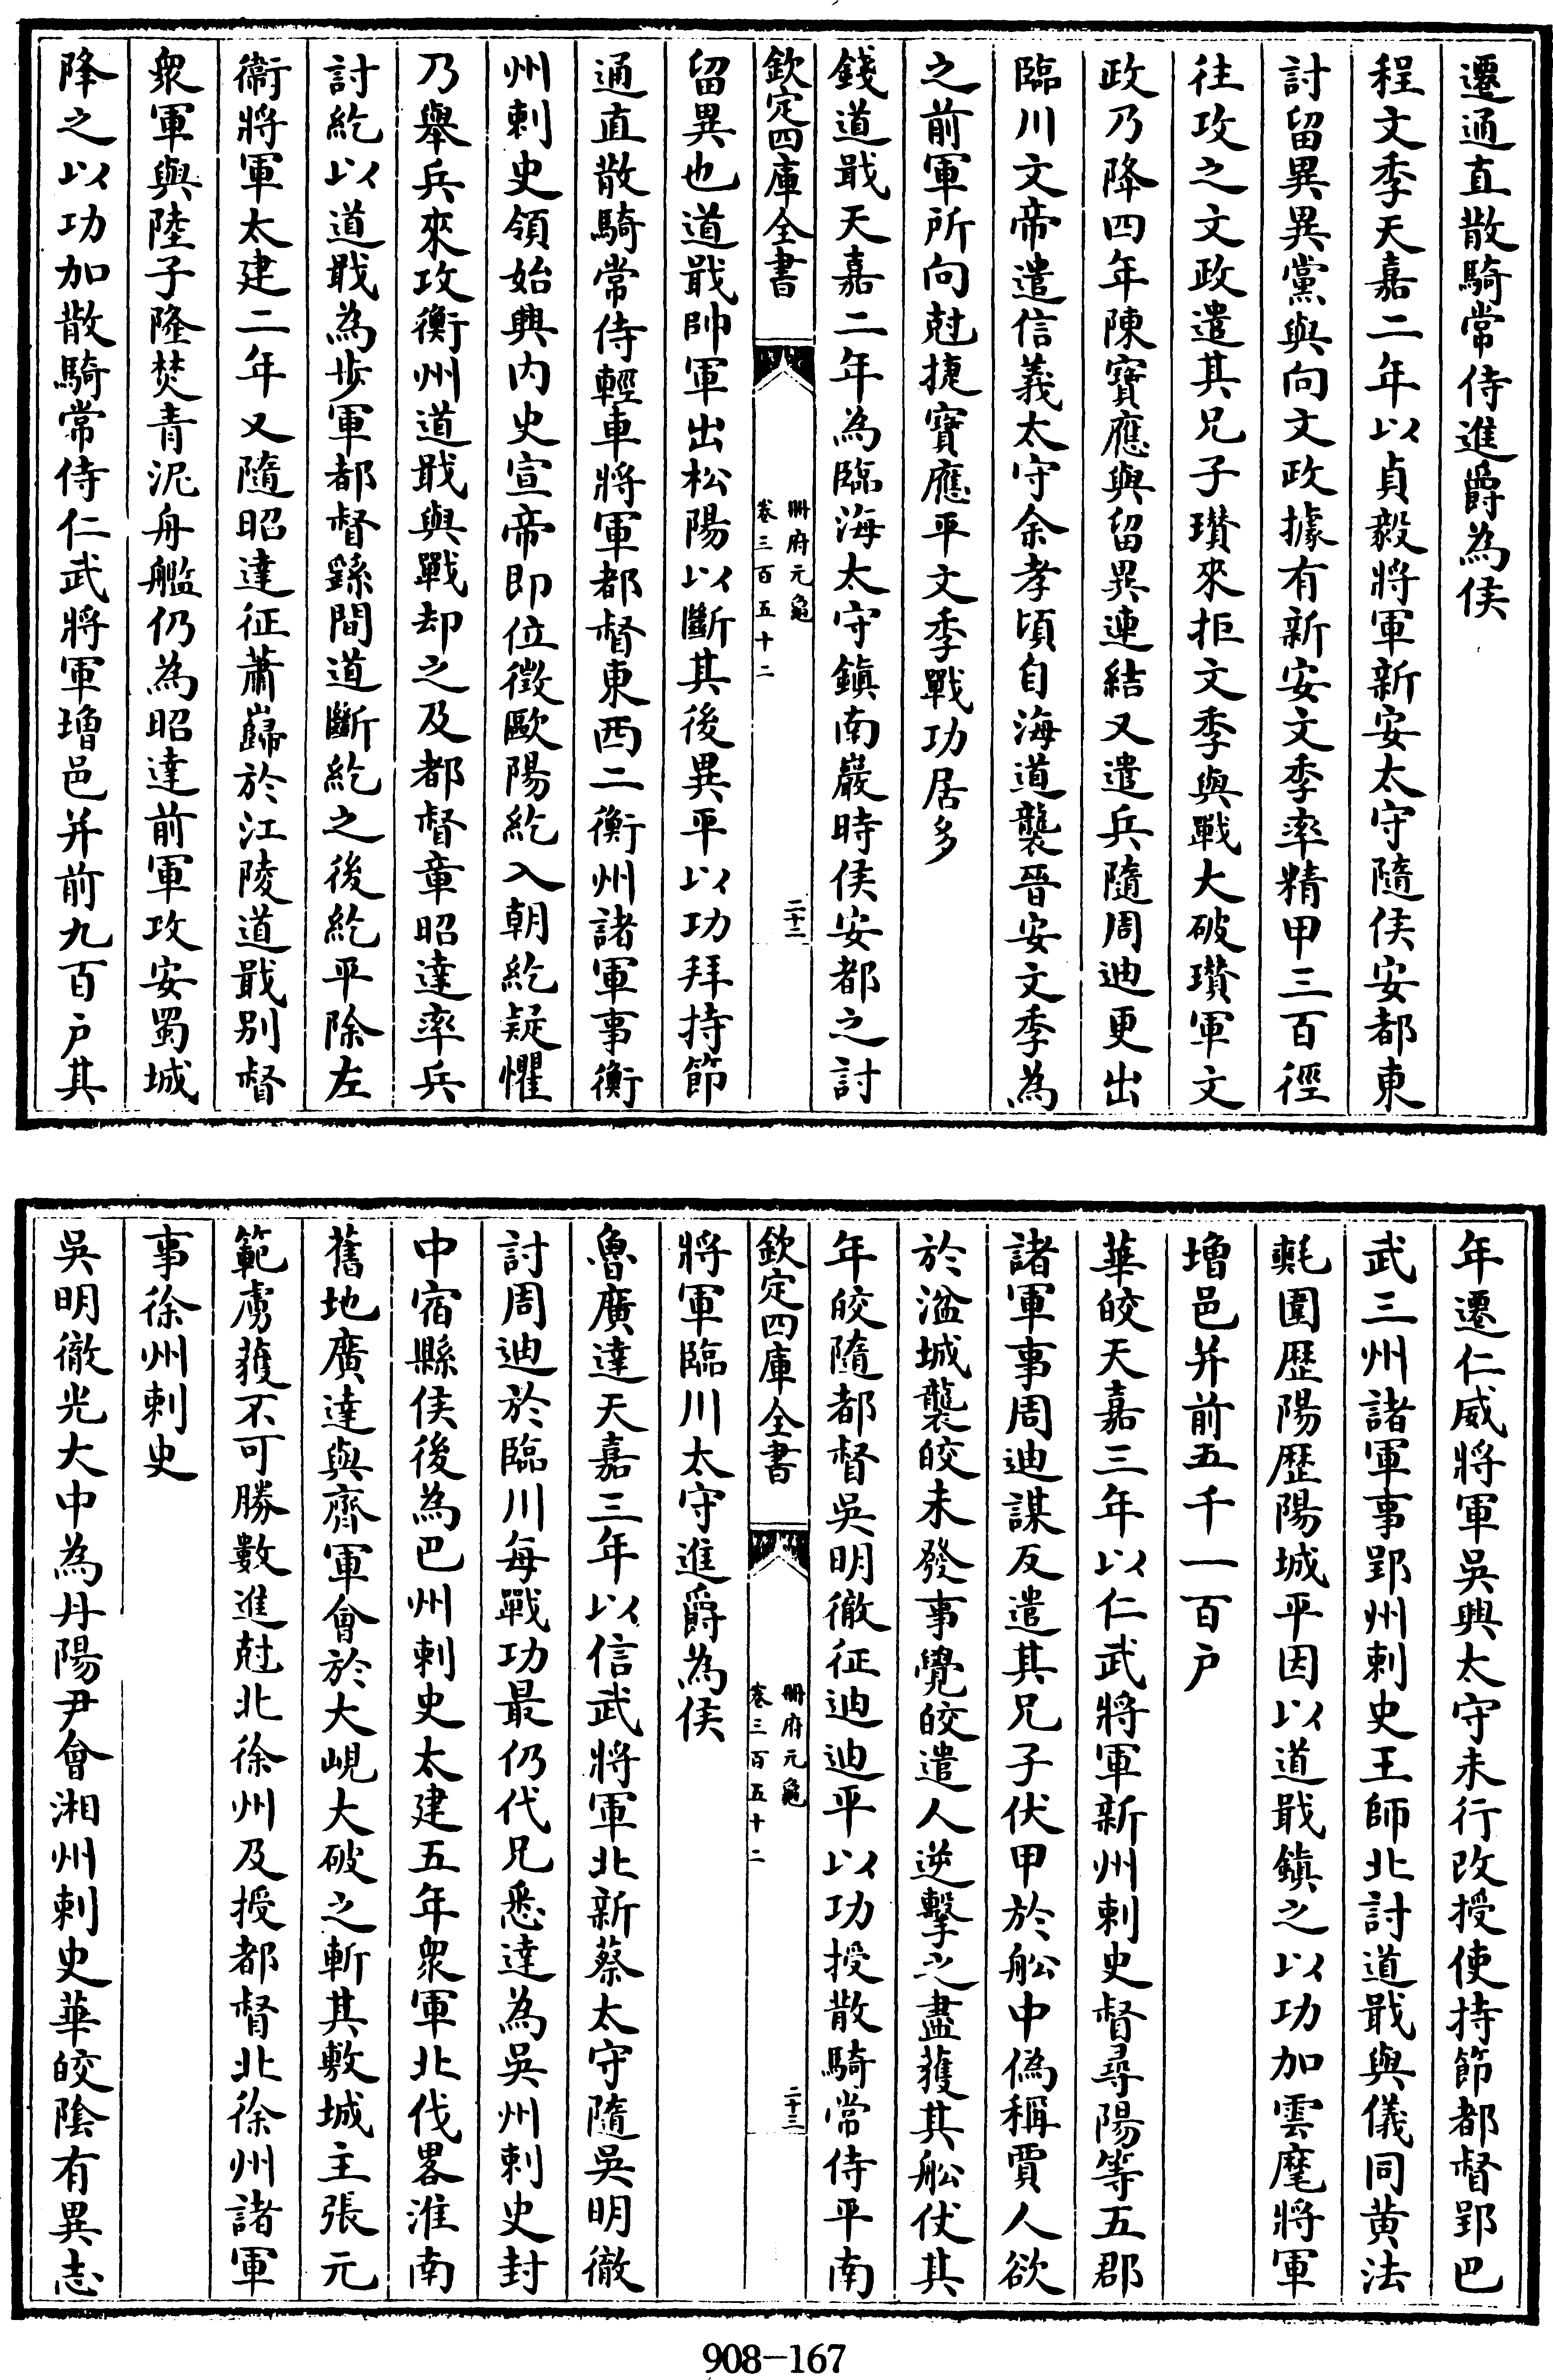 遷通直散騎常侍進爵為侯
程文季天嘉二年以貞毅將軍新安太守隨侯安都東
討留異異黨與向文政據有新安文季率精甲三百徑
往攻之文政遣其兄子瓚來拒文季與戰大破瓚軍文
政乃降四年陳寶應與留異連結又遣兵隨周迪更出
臨川文帝遣信義太守余孝頃自海道襲晉安文季為
之前軍所向尅捷寶應平文季戰功居多
錢道戢天嘉二年為臨海太守鎮南巖時侯安都之討
欽定四庫全書
冊府元龜
卷三百五十二
二十二
留異也道戢帥軍出松陽以斷其後異平以功拜持節
通直散騎常侍輕車將軍都督東西二衡州諸軍事衡
州刺史領始興內史宣帝即位徵歐陽紇入朝紇疑懼
乃舉兵來攻衡州道戢與戰却之及都督章昭達率兵
討紇以道戢為步軍都督繇間道斷紇之後紇平除左
衛將軍太建二年又隨昭達征蕭巋於江陵道戢別督
衆軍與陸子隆焚青泥舟艦仍為昭達前軍攻安蜀城
降之以功加散騎常侍仁武將軍增邑并前九百戶其
年遷仁威將軍吳興太守未行改授使持節都督郢巴
武三州諸軍事郢州刺史王師北討道戢與儀同黄法
𣰰圍歷陽歷陽城平因以道戢鎮之以功加雲麾將軍
增邑并前五千一百戶
華皎天嘉三年以仁武將軍新州刺史督尋陽等五郡
諸軍事周迪謀反遣其兄子伏甲於舩中偽稱賈人欲
於湓城襲皎未發事覺皎遣人逆擊之盡獲其舩伏其
年皎隨都督吳明徹征迪迪平以功授散騎常侍平南
欽定四庫全書
冊府元龜
卷三百五十二
二十三
將軍臨川太守進爵為侯
魯廣達天嘉三年以信武將軍北新蔡太守隨吳明徹
討周迪於臨川每戰功最仍代兄悉達為吳州刺史封
中宿縣侯後為巴州刺史太建五年衆軍北伐畧淮南
舊地廣達與齊軍會於大峴大破之斬其敷城主張元
範虜獲不可勝數進尅北徐州及授都督北徐州諸軍
事徐州刺史
吳明徹光大中為丹陽尹會湘州刺史華皎陰有異志
908-167